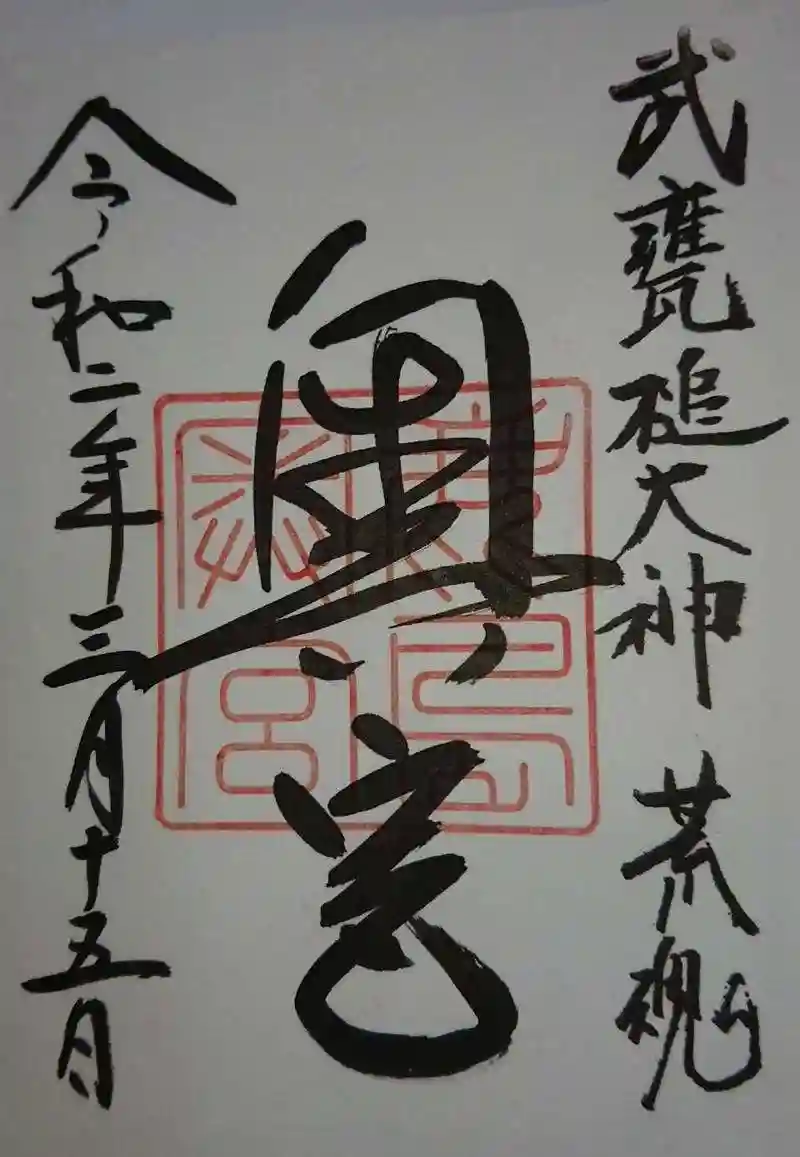 武甕槌大神 荒魂
奥宮
鹿島
奥宮
令和二年三月十五日